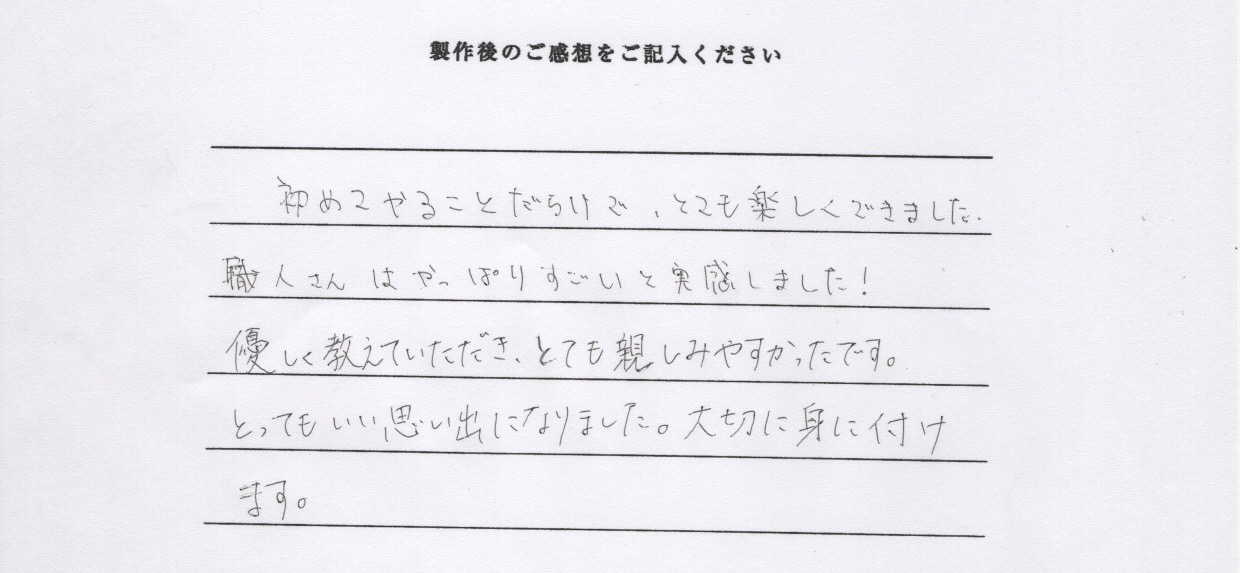 製作後のご感想をご記入ください
初めてやることだらけで、とても楽しくできました。
職人さんはやっぱりすごいと実感しました!
優しく教えていただき、とても親しみやすかったです。
とってもいい思い出になりました。大切に身に付け
ます。